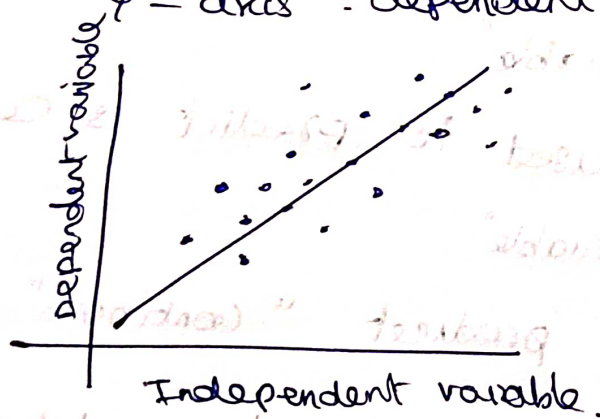 Y - axis : dependent
Dependent variable
Independent variable.